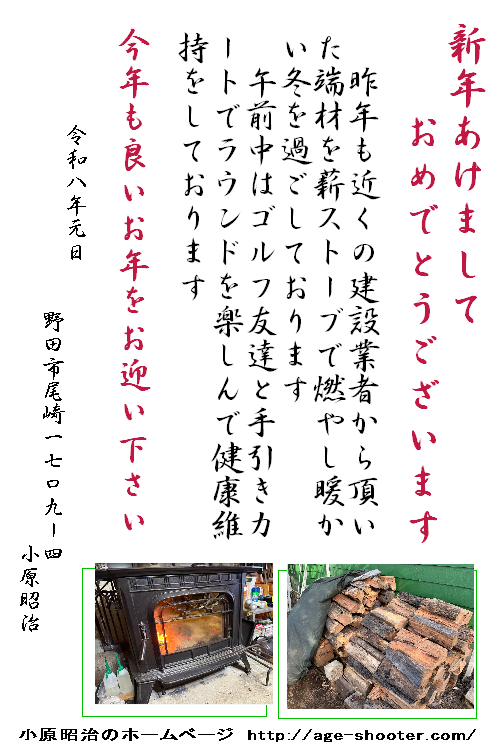 新年あけまして
おめでとうございます
昨年も近くの建設業者から頂い
た端材を薪ストーブで燃やし暖か
い冬を過ごしております
午前中はゴルフ友達と手引きカ
ートでラウンドを楽しんで健康維
持をしております
今年も良いお年をお迎い下さい
令和八年元日
野田市尾崎一七ロ九ー四
小原昭治
小原昭治のホームページ http://age-shooter.com/